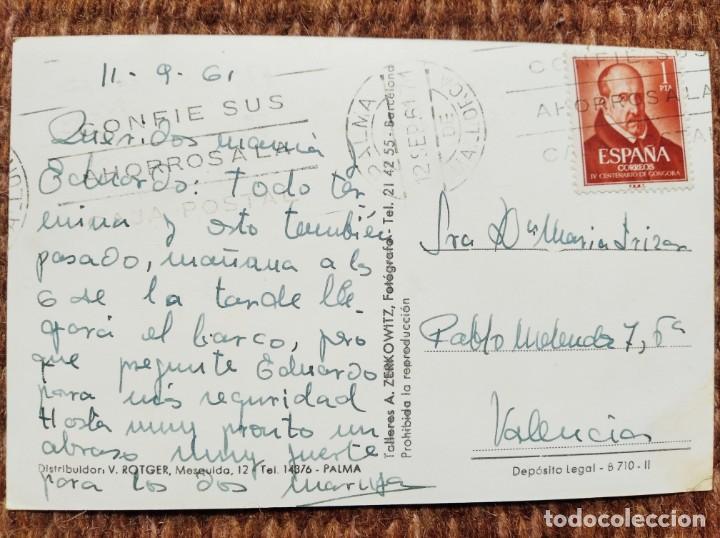 11-9-61
CONFIE SUS
AHORROS A LA
CAJA POSTAL
Queridos mamá
Eduardo: Todo ter
mina y esto también
pasado, mañana a las
6 de la tarde lle
gará el barco, pero
que pregunte Eduardo
para más seguridad
Hasta muy pronto un
abraso muy fuerte
para los dos
Distribuidor: V. ROTGER, Mesquida, 12 - Tel. 14376 - PALMA
Talleres A. ZERKOWITZ, Fotógrafo - Tel. 21 42 55 - Barcelona
Prohibida la reproducción
PALMA
12 SEP 61
DE
MALLORCA
CONFIE SUS
AHORROS A LA
1
PTA
ESPAÑA
CORREOS
IV CENTENARIO DE GONGORA
Sra Dña Maria
Pablo 7, 6ª
Valencia
Depósito Legal - B 710 - II
todocoleccion.net